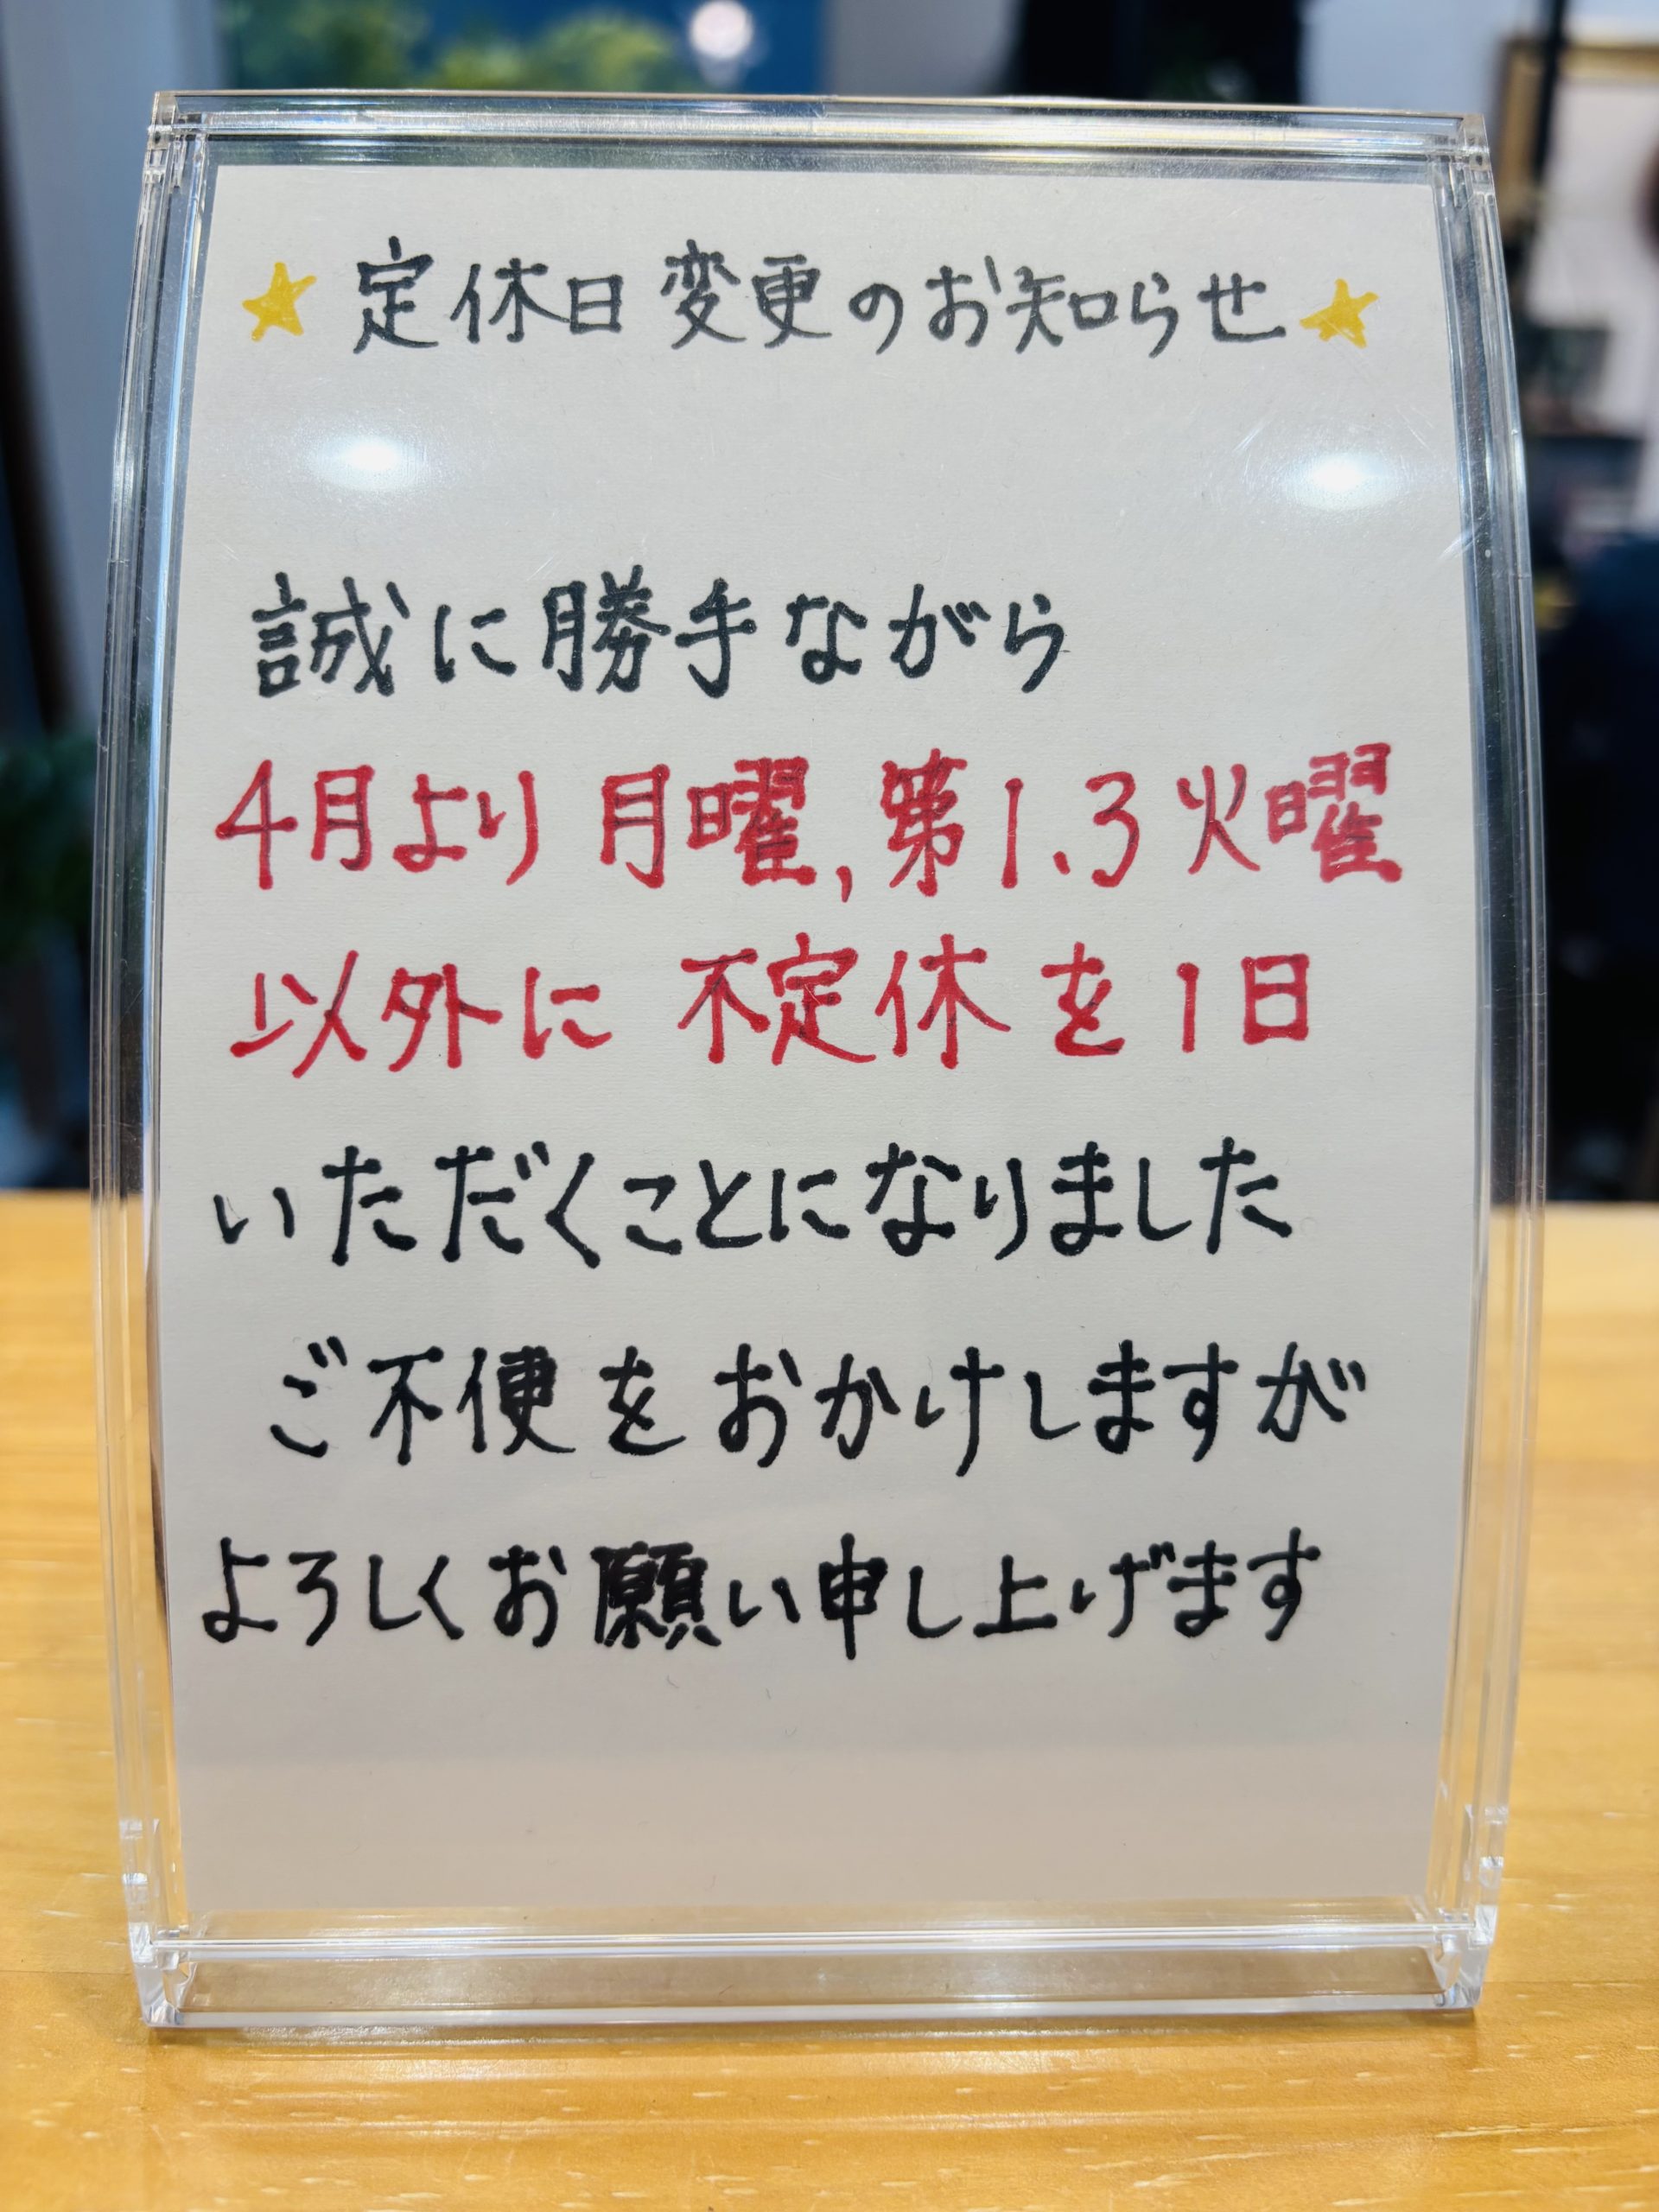 ★定休日変更のお知らせ★
誠に勝手ながら
4月より 月曜,第1.3火曜
以外に 不定休を1日
いただくことになりました
ご不便をおかけしますが
よろしくお願い申し上げます